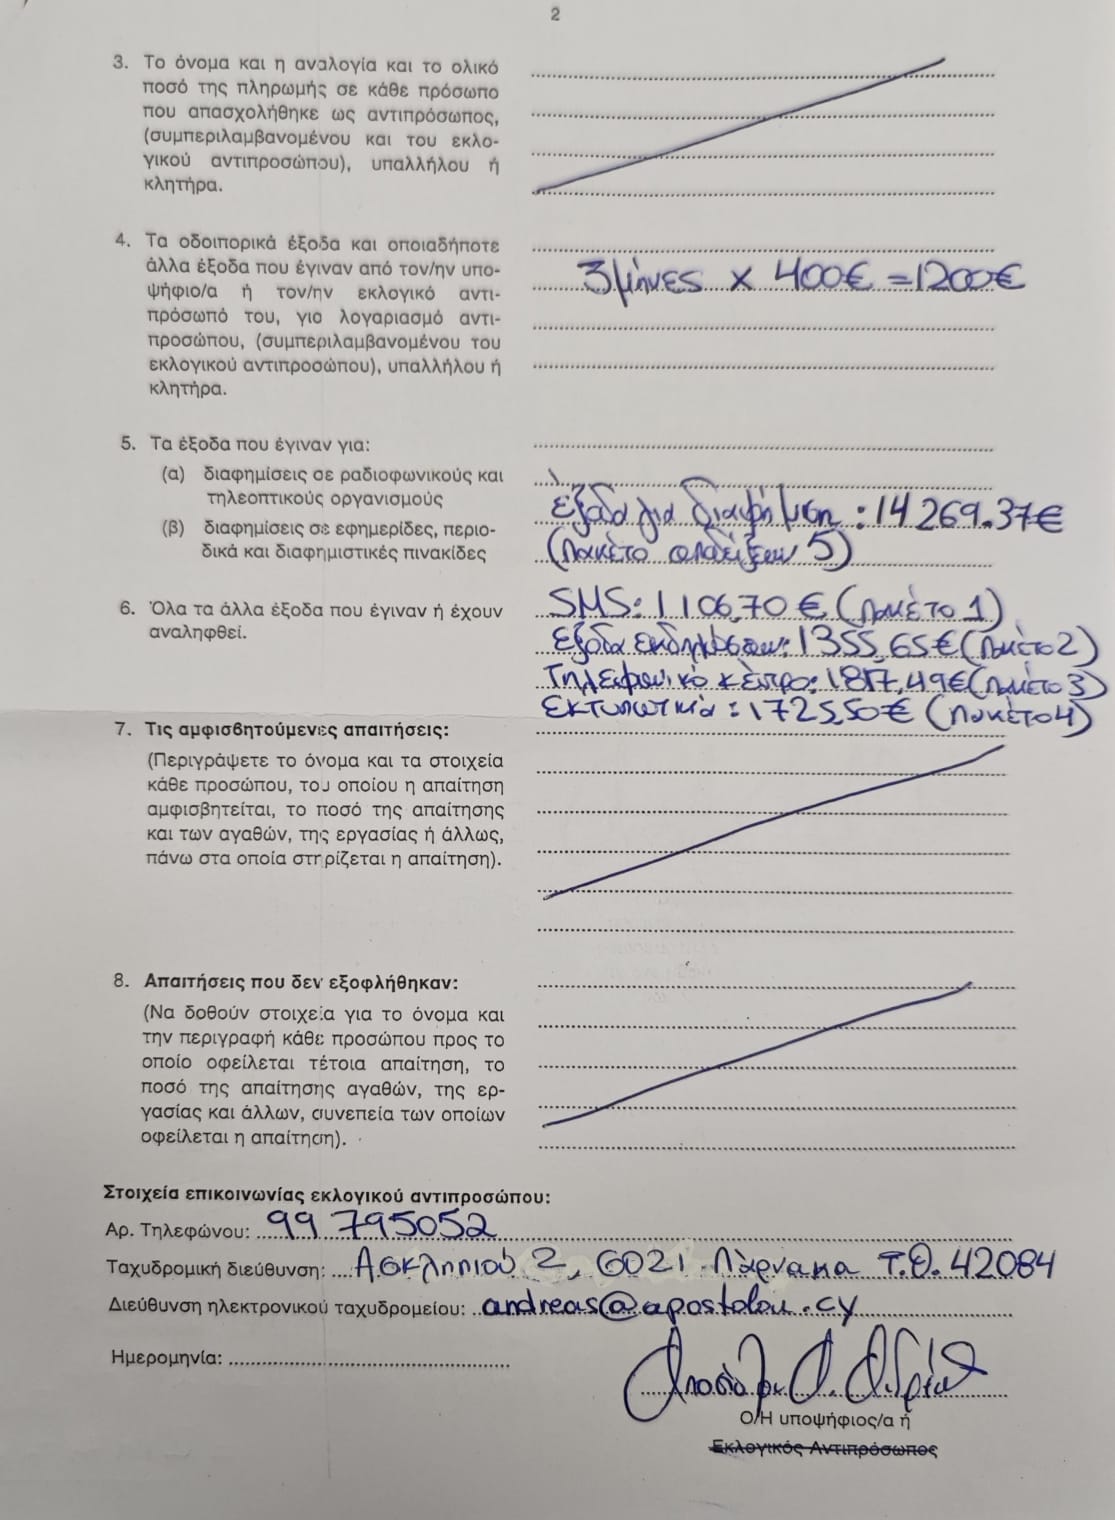 2
3. Το όνομα και η αναλογία και το ολικό
ποσό της πληρωμής σε κάθε πρόσωπο
που απασχολήθηκε ως αντιπρόσωπος,
(συμπεριλαμβανομένου και του εκλο-
γικού αντιπροσώπου), υπαλλήλου ή
κλητήρα.
4. Τα οδοιπορικά έξοδα και οποιαδήποτε
άλλα έξοδα που έγιναν από τον/ην υπο-
ψήφιο/α ή τον/ην εκλογικό αντι-
πρόσωπό του, για λογαριασμό αντι-
προσώπου, (συμπεριλαμβανομένου του
εκλογικού αντιπροσώπου), υπαλλήλου ή
κλητήρα.
3 μήνες x 400€ = 1200€
5. Τα έξοδα που έγιναν για:
(α) διαφημίσεις σε ραδιοφωνικούς και
τηλεοπτικούς οργανισμούς
(β) διαφημίσεις σε εφημερίδες, περιο-
δικά και διαφημιστικές πινακίδες
έξοδα για διαφήμιση : 14269.37€
(Πακέτο αποδείξεων 5)
6. Όλα τα άλλα έξοδα που έγιναν ή έχουν
αναληφθεί.
SMS: 1106,70 € (Πακέτο 1)
έξοδα εκδηλώσεων: 1355,65€ (Πακέτο 2)
Τηλεφωνικό κέντρο: 1817,49€ (Πακέτο 3)
Εκτυπωτικά : 1725,50€ (Πακέτο 4)
7. Τις αμφισβητούμενες απαιτήσεις:
(Περιγράψετε το όνομα και τα στοιχεία
κάθε προσώπου, του οποίου η απαίτηση
αμφισβητείται, το ποσό της απαίτησης
και των αγαθών, της εργασίας ή άλλως,
πάνω στα οποία στηρίζεται η απαίτηση).
8. Απαιτήσεις που δεν εξοφλήθηκαν:
(Να δοθούν στοιχεία για το όνομα και
την περιγραφή κάθε προσώπου προς το
οποίο οφείλεται τέτοια απαίτηση, το
ποσό της απαίτησης αγαθών, της ερ-
γασίας και άλλων, συνεπεία των οποίων
οφείλεται η απαίτηση).
Στοιχεία επικοινωνίας εκλογικού αντιπροσώπου:
Αρ. Τηλεφώνου: 99 795052
Ταχυδρομική διεύθυνση: Ασκληπιού 2, 6021 Λάρνακα Τ.Θ. 42084
Διεύθυνση ηλεκτρονικού ταχυδρομείου: andreas@apostolou.cy
Ημερομηνία:
Ο/Η υποψήφιος/α ή
Εκλογικός Αντιπρόσωπος